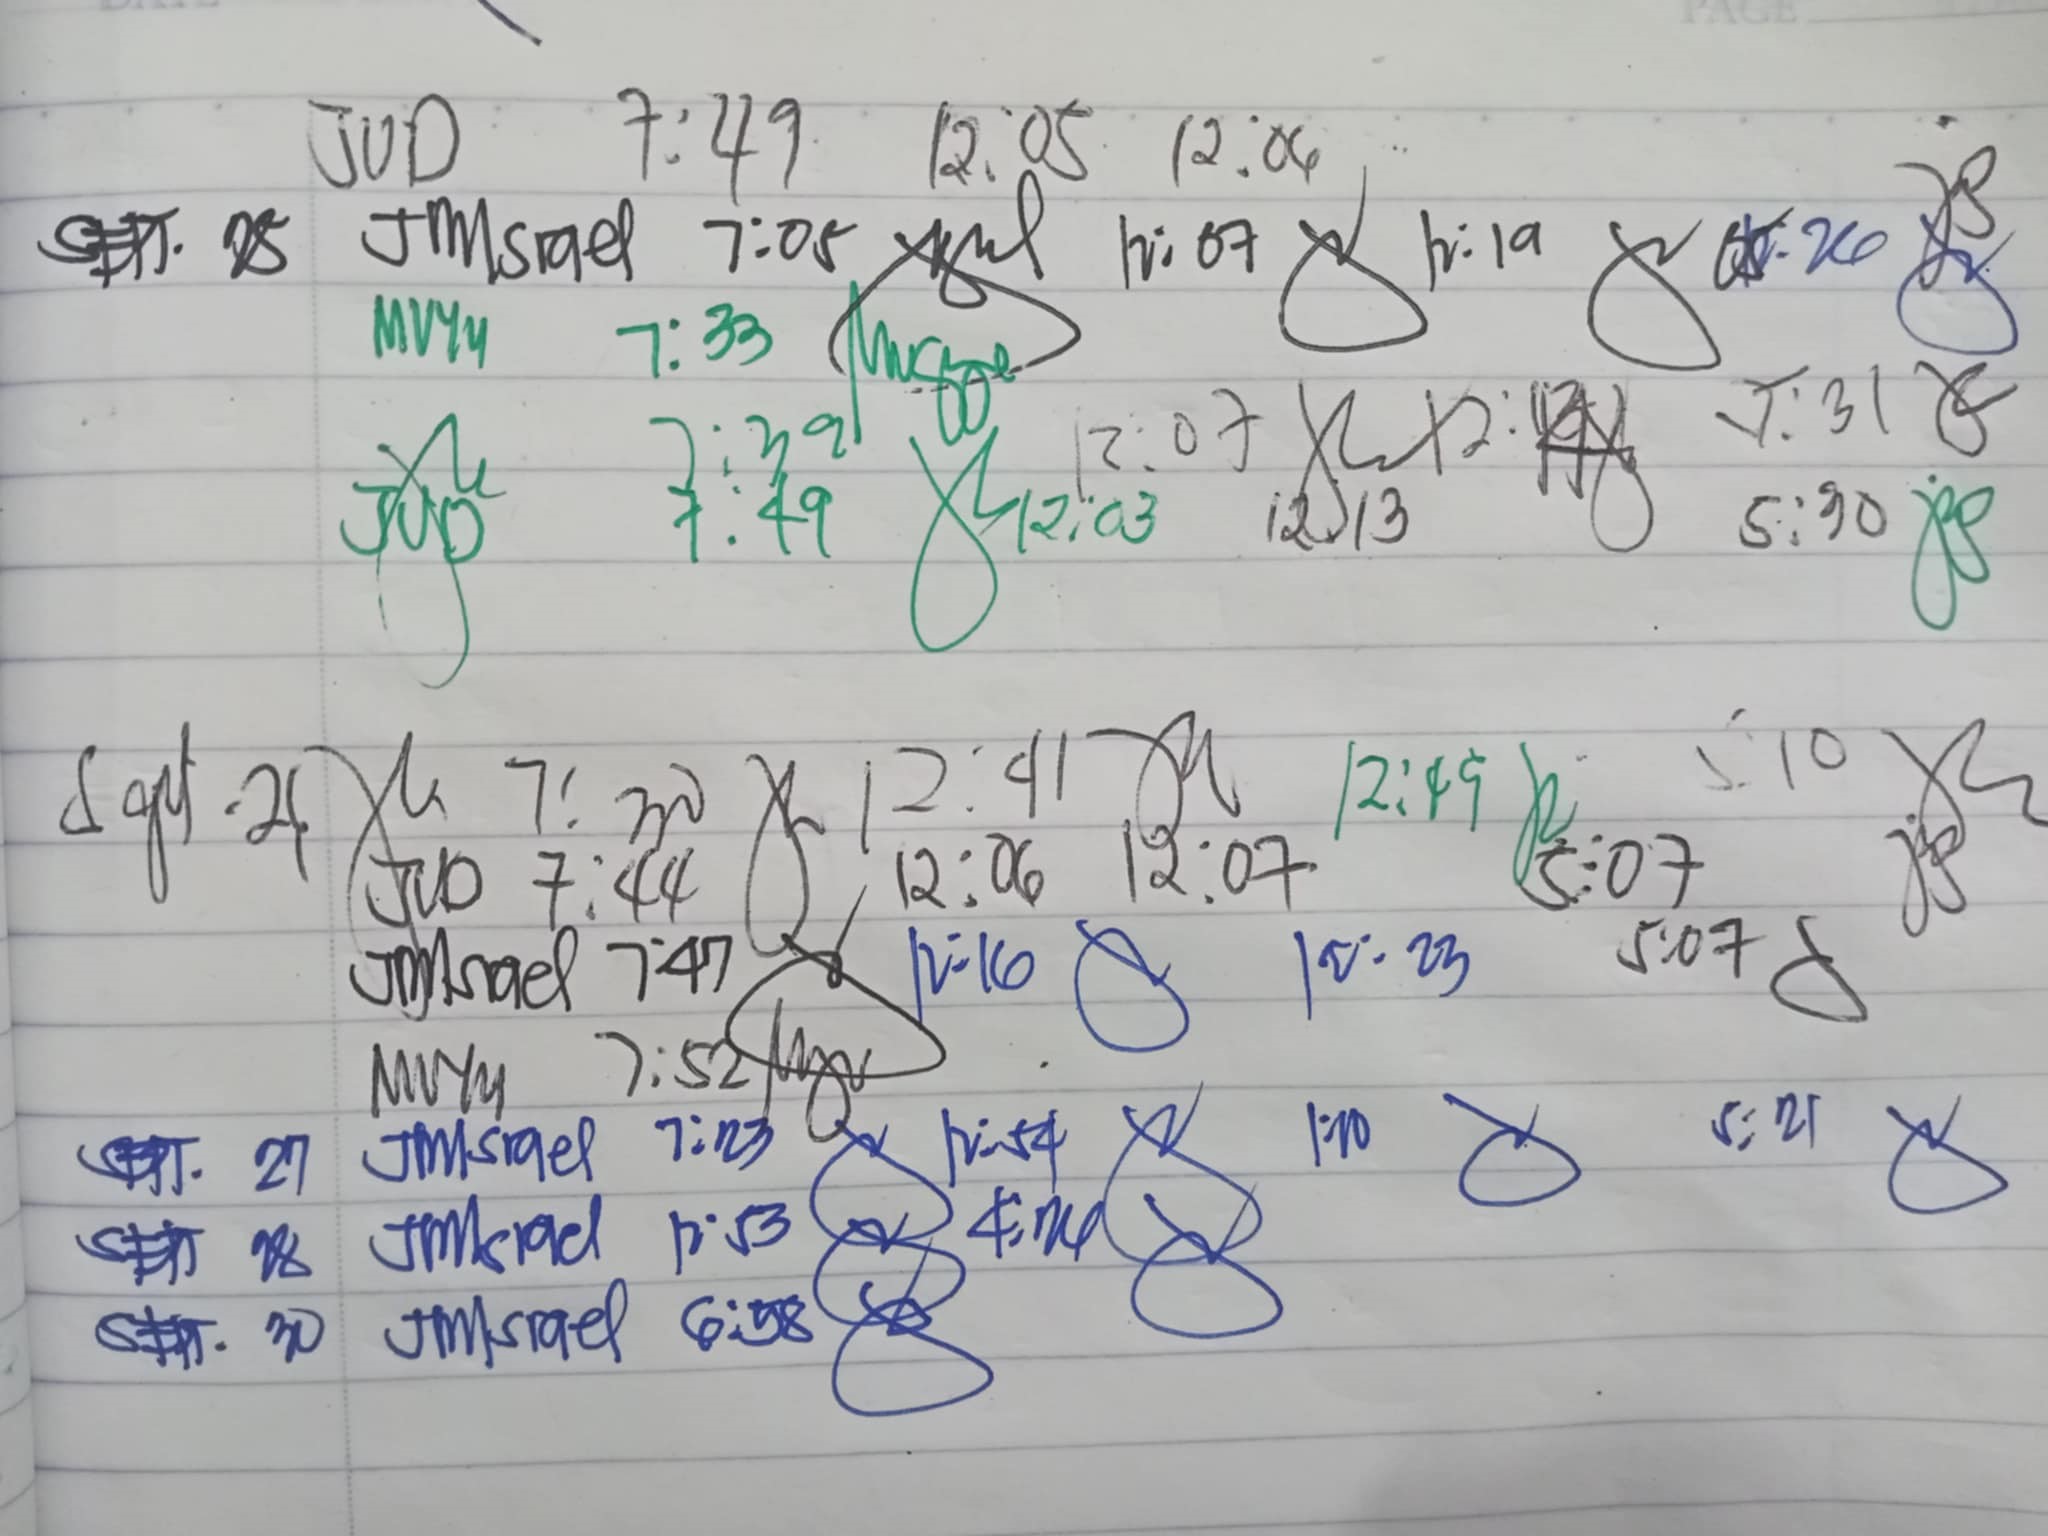 DATE PAGE
JUD 7:49 12:05 12:06
SEPT. 25 JMIsrael 7:05 12:07 12:19 05:26
MVYu 7:33
7:39 12:07 5:31
JUD 7:49 12:03 12:13 5:30
Sept. 26 7:30 12:41 12:49 5:10
JUD 7:44 12:06 12:07 5:07
JMIsrael 7:47 12:16 12:23 5:07
MVYu 7:52
SEPT. 27 JMIsrael 7:23 12:54 1:10 5:21
SEPT. 28 JMIsrael 12:53 4:26
SEPT. 30 JMIsrael 6:58